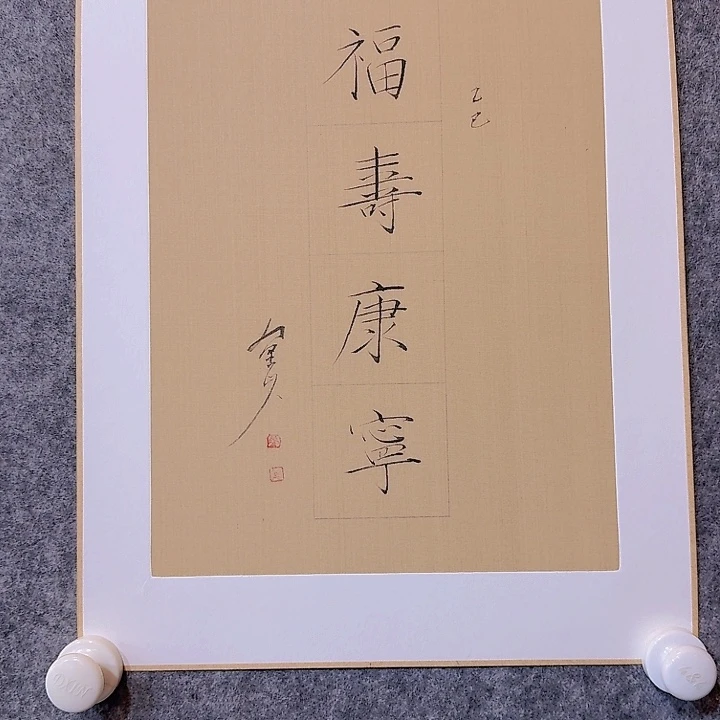 乙巳
福壽康寧